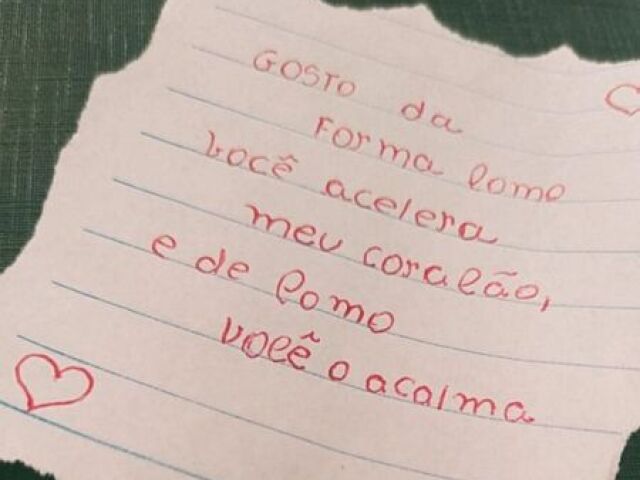 GOSTO da
Forma como
você acelera
meu coração,
e de como
você o acalma